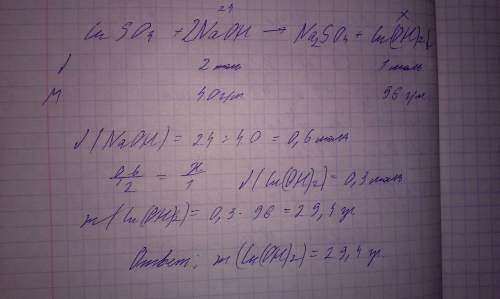 24 x
CuSO₄ + 2NaOH → Na₂SO₄ + Cu(OH)₂↓
ν 2 моль 1 моль
М 40 гр. 98 гр.
ν(NaOH) = 24 : 40 = 0,6 моль
0,6/2 = x/1 ν(Cu(OH)₂) = 0,3 моль
m(Cu(OH)₂) = 0,3 · 98 = 29,4 гр.
Ответ: m(Cu(OH)₂) = 29,4 гр.